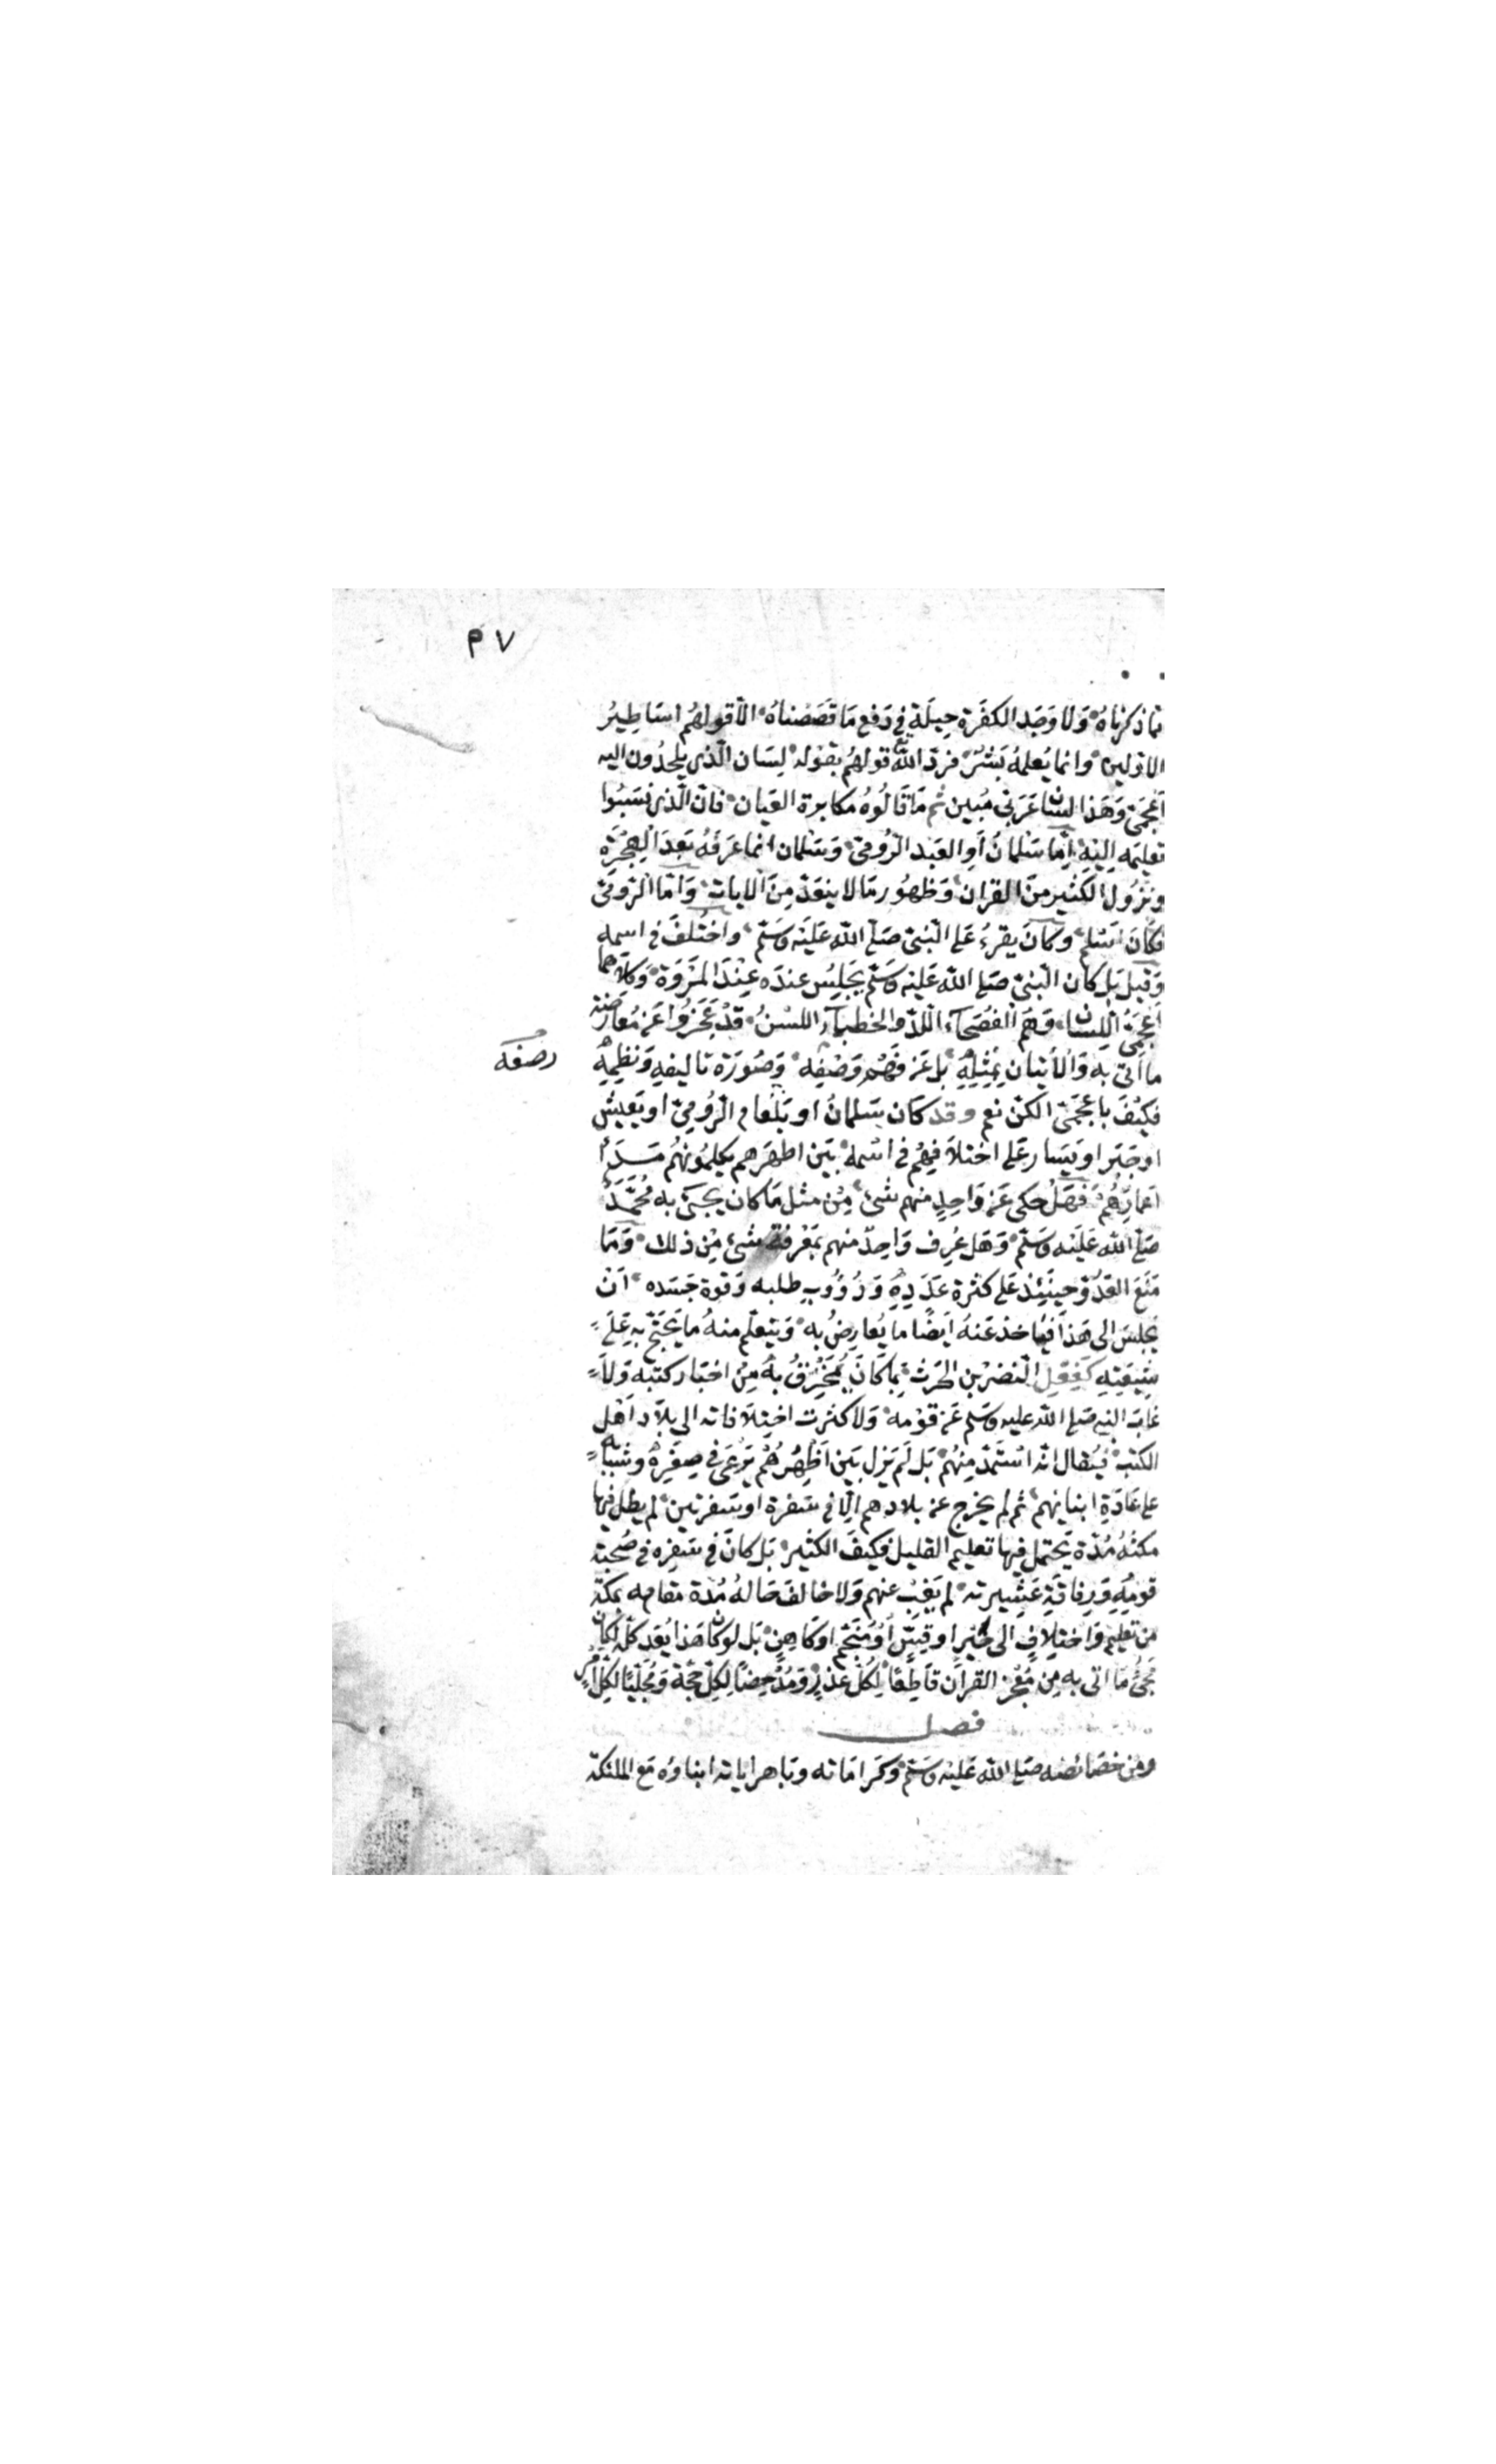 ٧٩
مما ذكرناه ولا وجد الكفرة حيلة في دفع ما قصصناه الا قولهم اساطير
الاولين وانما يعلمه بشر فرد الله قولهم بقوله لسان الذي يلحدون اليه
اعجمي وهذا لسان عربي مبين ثم ما قالوه مكابرة العيان فان الذي نسبوا
تعليمه اليه اما سلمان او العبد الرومي وسلمان انما عرفه بعد الهجرة
ونزول الكثير من القران وظهور ما لا ينعد من الايات واما الرومي
فكان اسلم وكان يقرء على النبي صلى الله عليه وسلم واختلف في اسمه
وقيل بل كان النبي صلى الله عليه وسلم يجلس عنده عند المروة وكلاهما
اعجمي اللسان وهم الفصحاء اللد والخطباء اللسن قد عجزوا عن معارضة
ما اتى به والاتيان بمثله بل عن فهم وصفه وصورة تاليفه ونظمه
رصفه
فكيف باعجمي الكن نعم وقد كان سلمان او بلعام الرومي او يعيش
او جبر او يسار على اختلافهم في اسمه بين اظهرهم يكلمونهم مدا
اعمارهم فهل حكي عن واحد منهم شئ من مثل ما كان يجئ به محمد
صلى الله عليه وسلم وهل عرف واحد منهم بمعرفة شئ من ذلك وما
منع العدو حينئذ على كثرة عدده ودؤوب طلبه وقوة حسده ان
يجلس الى هذا فياخذ عنه ايضا ما يعارض به ويتعلم منه ما يحتج به على
شيعته كفعل النضر بن الحرث بما كان يمخرق به من اخبار كتبه ولا
غاب النبي صلى الله عليه وسلم عن قومه ولا كثرت اختلافاته الى بلاد اهل
الكتب فيقال انه استمد منهم بل لم يزل بين اظهرهم يرعى في صغره وشبابه
على عادة ابنائهم ثم لم يخرج عن بلادهم الا في سفرة او سفرتين لم يطل فيها
مكثه مدة يحتمل فيها تعليم القليل فكيف الكثير بل كان في سفره في صحبة
قومه ورفاقة عشيرته لم يغب عنهم ولا خالف حاله مدة مقامه بمكة
من تعليم واختلاف الى حبر او قس او منجم او كاهن بل لو كان هذا بعد كله لكان
مجئ ما اتى به من معجز القران قاطعا لكل عذر ومدحضا لكل حجة ومجليا لكل امر
فصل
ومن خصائصه صلى الله عليه وسلم وكراماته وباهر اياته انباؤه مع الملئكة